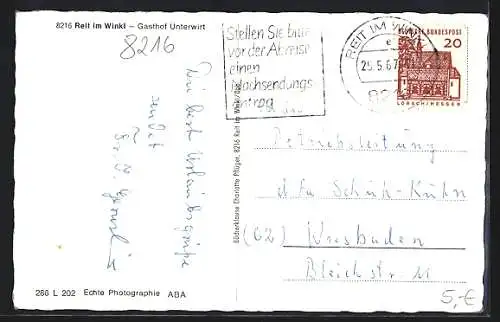 8216 Reit im Winkl – Gasthof Unterwirt
8216
Stellen Sie bitte
vor der Abreise
einen
Nachsendungs-
antrag
REIT IM WINKL
e
25.5.67
8216
DEUTSCHE BUNDESPOST
20
LORSCH/HESSEN
Die besten Urlaubsgrüße
sendet
Büdserklause Charlotte Pflüger, 8216 Reit im Winkl/Obb.
Betriebsleitung
d. Fa Schuh-Kuhn
(62) Wiesbaden
Bleichstr. 11
266 L 202 Echte Photographie ABA
5,-€